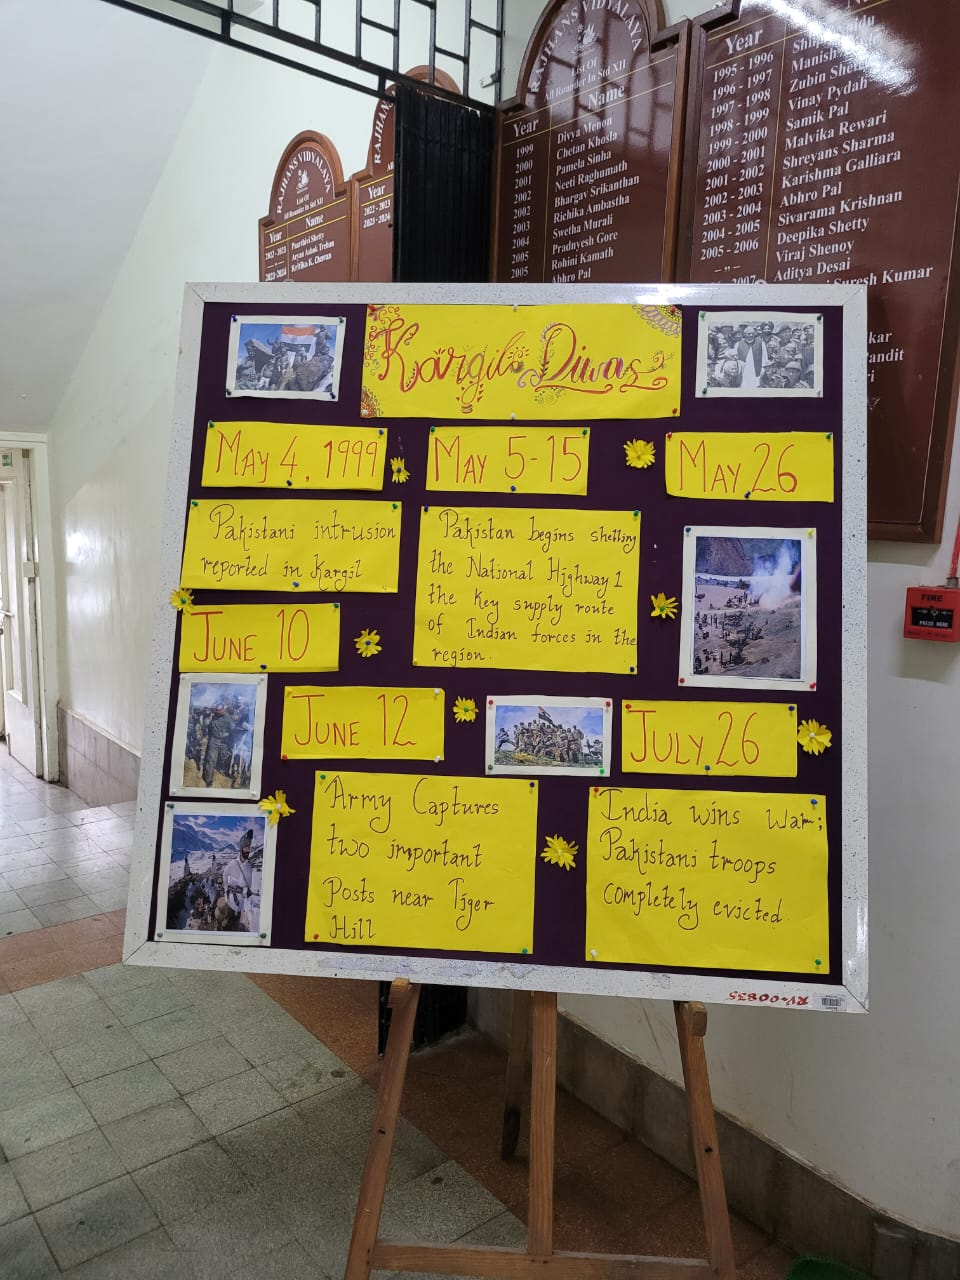 Kargil Diwas
May 4, 1999
Pakistani intrusion
reported in Kargil
May 5-15
Pakistan begins shelling
the National Highway 1
the key supply route
of Indian forces in the
region.
May 26
June 10
June 12
Army Captures
two important
Posts near Tiger
Hill
July 26
India wins War;
Pakistani troops
completely evicted.
RV-00835
RAJHANS VIDYALAYA
List Of
All Rounder In Std XII
Year Name
2022-2023 Paarthvi Shetty
-"- Aryan Ashok Trehan
2023-2024 Kritika K. Chavan
RAJHANS
Year
2022-2023
2023-2024
RAJHANS VIDYALAYA
List Of
All Rounder In Std XII
Year Name
1999 Divya Menon
2000 Chetan Khosla
2000 Pamela Sinha
2001 Neeti Raghumath
2002 Bhargav Srikanthan
2002 Richika Ambastha
2003 Swetha Murali
2004 Pradnyesh Gore
2005 Rohini Kamath
2005 Abhro Pal
Year
1995 - 1996
1996 - 1997 Manish
1997 - 1998 Zubin She
1998 - 1999 Vinay Pydah
1999 - 2000 Samik Pal
2000 - 2001 Malvika Rewari
2001 - 2002 Shreyans Sharma
2002 - 2003 Karishma Galliara
2003 - 2004 Abhro Pal
2004 - 2005 Sivarama Krishnan
2005 - 2006 Deepika Shetty
-"- Viraj Shenoy
2007 Aditya Desai
Suresh Kumar
kar
andit
ri
FIRE
PRESS HERE